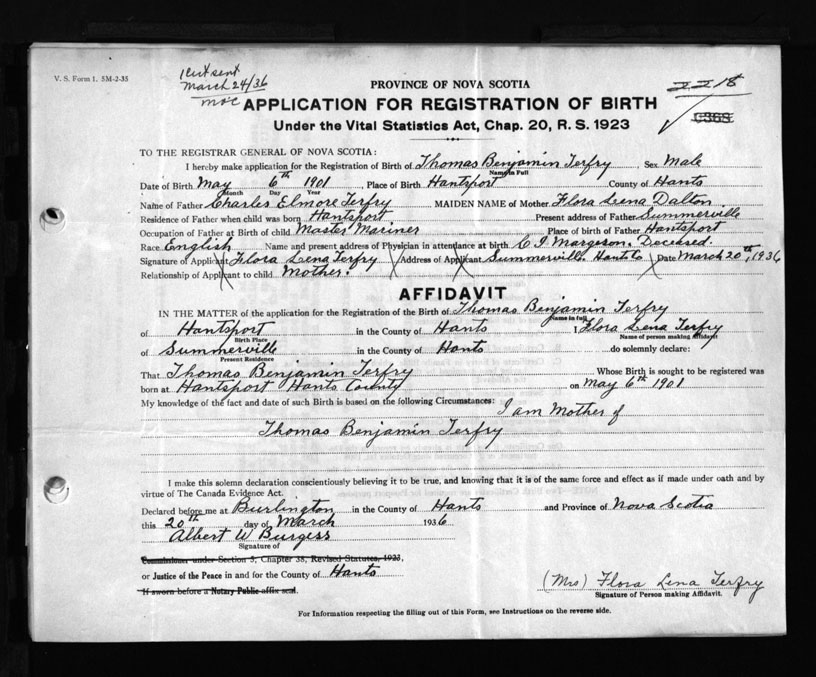 V. S. Form 1. 5M-2-35
March 24/36
2218
PROVINCE OF NOVA SCOTIA
APPLICATION FOR REGISTRATION OF BIRTH
Under the Vital Statistics Act, Chap. 20, R. S. 1923
TO THE REGISTRAR GENERAL OF NOVA SCOTIA:
I hereby make application for the Registration of Birth of Thomas Benjamin Terfry Sex Male
Name in Full
Date of Birth May 6th 1901 Place of Birth Hantsport County of Hants
Month Day Year
Name of Father Charles Elmore Terfry MAIDEN NAME of Mother Flora Lena Dalton
Residence of Father when child was born Hantsport Present address of Father Summerville
Occupation of Father at Birth of child Master Mariner Place of birth of Father Hantsport
Race English Name and present address of Physician in attendance at birth C. I. Margeson. Deceased.
Signature of Applicant Flora Lena Terfry Address of Applicant Summerville. Hants Co Date March 20th, 1936
Relationship of Applicant to child Mother.
AFFIDAVIT
IN THE MATTER of the application for the Registration of the Birth of Thomas Benjamin Terfry
Name in full
of Hantsport in the County of Hants I, Flora Lena Terfry
Birth Place Name of person making Affidavit
of Summerville in the County of Hants do solemnly declare:
Present Residence
That Thomas Benjamin Terfry Whose Birth is sought to be registered was
born at Hantsport Hants County on May 6th 1901
My knowledge of the fact and date of such Birth is based on the following Circumstances: I am Mother of
Thomas Benjamin Terfry
I make this solemn declaration conscientiously believing it to be true, and knowing that it is of the same force and effect as if made under oath and by
virtue of The Canada Evidence Act.
Declared before me at Burlington in the County of Hants and Province of Nova Scotia
this 20th day of March 1936
Albert W Burgess
Signature of
Commissions under Section 5, Chapter 38, Revised Statutes, 1923,
or Justice of the Peace in and for the County of Hants
If sworn before a Notary Public affix seal.
(Mrs) Flora Lena Terfry
Signature of Person making Affidavit.
For Information respecting the filling out of this Form, see Instructions on the reverse side.